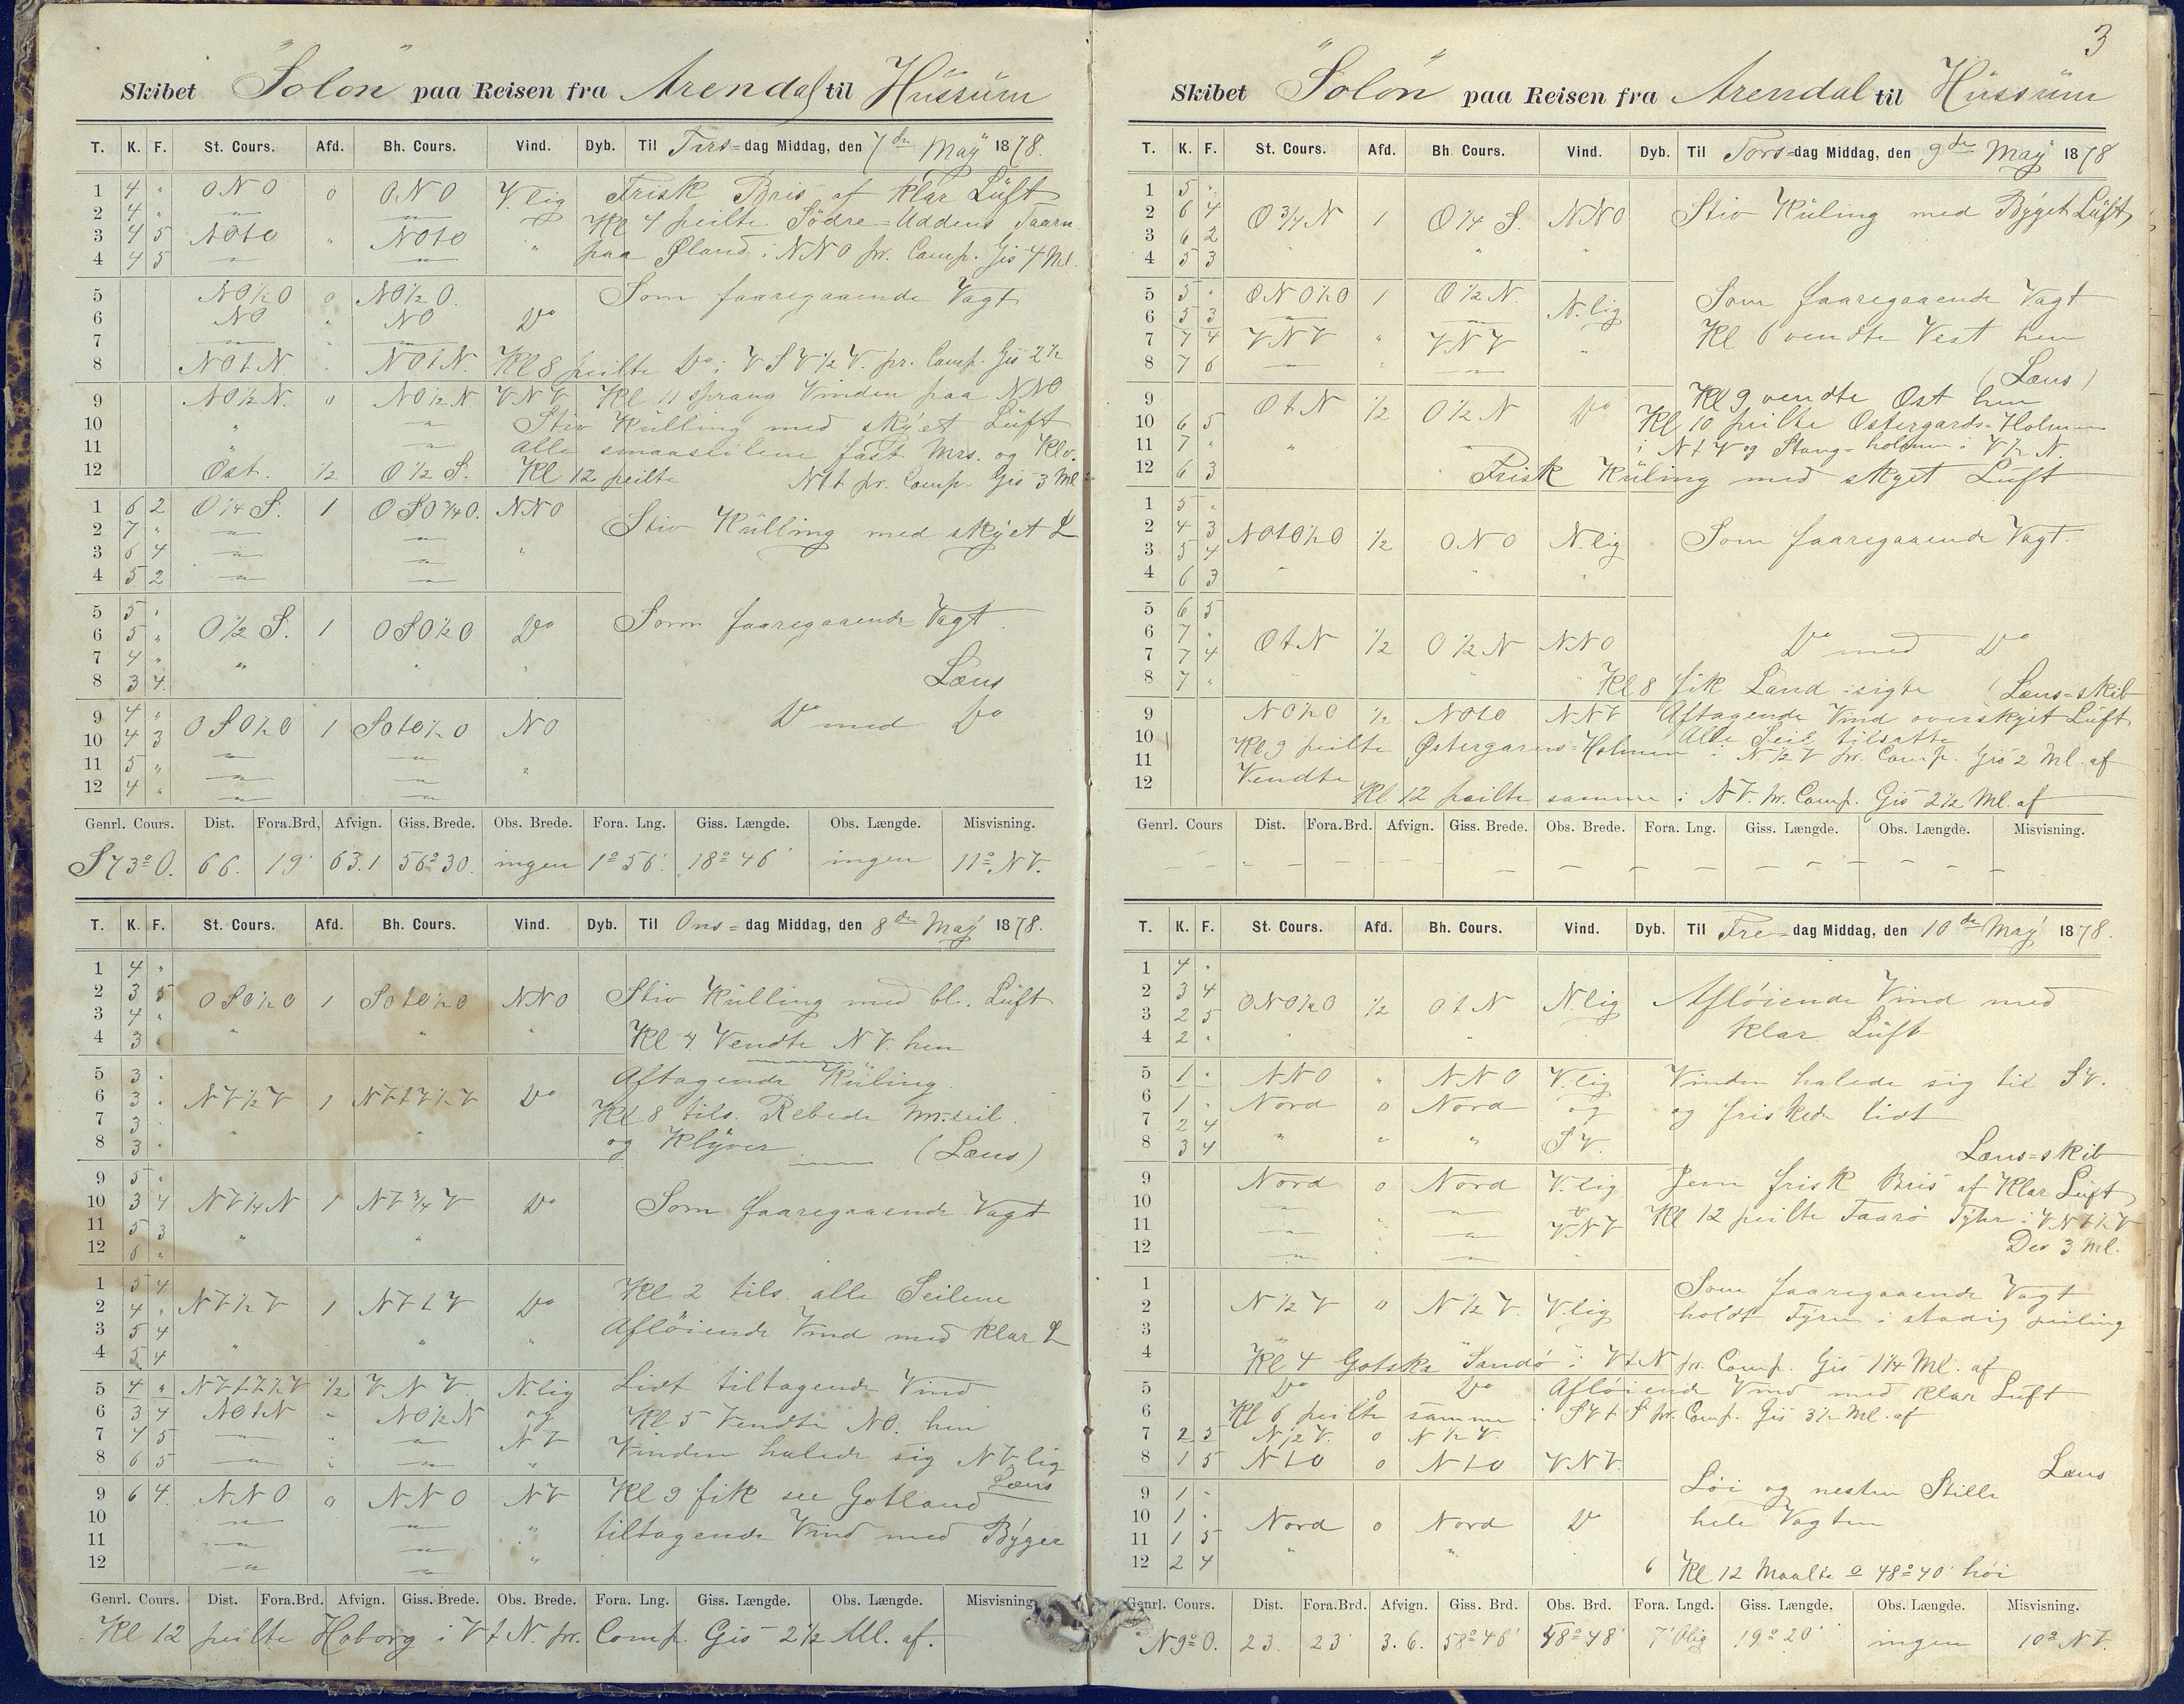 Skibet "Solon" paa Reisen fra Arendal til Hüssüm
T. K. F. St. Cours. Afd. Bh. Cours. Vind. Dyb. Til Tirs=dag Middag, den 7de May 1878.
1 4 " ONO 0 ONO V.lig Frisk Bris af klar Lüft
2 4 " Kl 4 peilte Södre=Uddens Taarn
3 4 5 NOtO " NOtO " paa Øland i NNO pr. Comp. Gis 4 Ml.
4 4 5
5 NO½O 0 NO½O. Som faaregaaende Vagt
6 NO " NO Do
7
8 NOtN " NOtN. Kl 8 peilte Do i VSV½V. pr. Comp. Gis 2½
9 NO½N. 0 NO½N VNV Kl 11 sprang Vinden paa NNO
10 " Stiv Külling med skyet Lüft
11 alle smaaseilene fast Mrs. og Klv.
12 Öst. ½ O½S. Kl 12 peilte Ntt pr. Comp. Gis 3 Ml
1 6 2 O¼S. 1 OSO¾O. NNO
2 7 " Stiv Külling med skyet L
3 6 4 "
4 5 2
5 5 "
6 5 " O½S. 1 OSO½O Do Som faaregaaende Vagt.
7 4 " " " "
8 3 4 Læns
9 4 "
10 4 3 OSO½O 1 SOtO½O NO Do med Do
11 5 " "
12 4 "
Genrl. Cours. Dist. Fora.Brd, Afvign. Giss. Brede. Obs. Brede. Fora. Lng. Giss. Længde. Obs. Længde. Misvisning.
S73°O. 66. 19' 63.1 56°30. ingen 1°56' 18°46' ingen 11° NV.
T. K. F. St. Cours. Afd. Bh. Cours. Vind. Dyb. Til Ons=dag Middag, den 8de May 1878.
1 4 "
2 3 5 OSO½O 1 SOtO½O NNO Stiv Külling med bl. Lüft
3 4 " " " "
4 3 " Kl 4 Vendte NV. hen
5 3 " Aftagende Küling.
6 3 " NV½V 1 NVtV½V Do Kl 8 tils. Rebede Mr.seil.
7 3 " " "
8 3 " og Klyver (Læns)
9 5 "
10 3 4 NV¼N 1 NV¾V Do Som faaregaaende Vagt
11 5 3 " "
12 6 "
1 5 4 Kl 2 tils. alle Seilene
2 4 " NV½V 1 NVtV Do
3 5 4 " " " Aflöiende Vind med klar L
4 5 4
5 4 " NVtV½V ½ VNV. N.lig Lidt tiltagende Vind
6 3 4 NOtN " NO½N og Kl 5 Vendte NO. hen
7 4 5 NV Vinden halede sig NVlig
8 6 5 " Læns
9 6 4. NNO 0 NNO NV Kl 9 fik see Gotland
10 " tiltagende Vind med Byger
11 "
12 "
Genrl. Cours. Dist. Fora.Brd. Afvign. Giss. Brede. Obs. Brede. Fora. Lng. Giss. Længde. Obs. Længde. Misvisning.
Kl 12 peilte Hoborg i VtN. pr. Comp. Gis 2½ Ml. af.
3
Skibet "Solon" paa Reisen fra Arendal til Hüssüm
T. K. F. St. Cours. Afd. Bh. Cours. Vind. Dyb. Til Tors=dag Middag, den 9de May 1878
1 5 "
2 6 4 O¾N 1 O¼S. NNO Stiv Küling med Byget Lüft
3 6 2
4 5 3
5 5 " ONO½O 1 O½N. N.lig Som faaregaaende Vagt
6 5 3 Kl 6 vendte Vest hen
7 7 4 VNV " VNV "
8 7 6 (Læns)
9 OtN ½ O½N Do Kl 9 vendte Öst hen
10 6 5 Kl 10 peilte Östergards=Holmen
11 7 " " i NtV og Stang=holmen i V½N.
12 6 3 Frisk Küling med skyet Lüft
1 5 "
2 4 3 NOtO½O ½ ONO N.lig Som faaregaaende Vagt.
3 5 4
4 6 3
5 6 5
6 7 " OtN ½ O½N NNO Do med Do
7 7 4
8 7 " Kl 8 fik Land i sigte (Læns=skib
9 NO½O ½ NOtO NNV Aftagende Vind overskyet Lüft
10 Alle Seil tilsatte
11 Kl 9 peilte Östergarns=Holmen i N½V pr. Comp. Gis 2 Ml. af
12 Vendte Kl 12 peilte samme i NV. pr. Comp. Gis 2½ Ml. af
Genrl. Cours Dist. Fora.Brd. Afvign. Giss. Brede. Obs. Brede. Fora. Lng. Giss. Længde. Obs. Længde. Misvisning.
T. K. F. St. Cours. Afd. Bh. Cours. Vind. Dyb. Til Fre=dag Middag, den 10de May 1878.
1 4 "
2 3 4 ONO½O ½ OtN N.lig Aflöiende Vind med
3 2 5
4 2 " klar Lüft
5 1 " NNO " NNO V.lig Vinden halede sig til SV.
6 1 " Nord 0 Nord og og friskede lidt
7 2 4
8 3 4 " " " SV. Læns=skib
9 Nord 0 Nord V.lig Jevn frisk Bris af Klar Lüft
10 Kl 12 peilte Faarö Fyhr i VNV½V
11 VNV
12 Des 3 Ml.
1 Som faaregaaende Vagt
2 N½V 0 N½V. V.lig holdt Fyren i stadig peiling
3
4 Kl 4 Gotska Sandö i VtN pr. Comp. Gis 1¼ Ml. af
5 Do 0 Do Aflöiende Vind med klar Lüft
6 Kl 6 peilte samme i SVtS pr. Comp. Gis 3½ Ml. af
7 2 3 N½V. 0 N½V.
8 1 5 NtO 0 NtO VNV. Læns
9 1 " Löi og nesten Stille
10 1 " Nord 0 Nord Do hele Vagten
11 1 5 " "
12 2 4 Kl 12 Maalte 48°40' höi
Genrl. Cours. Dist. Fora.Brd. Afvign. Giss. Brd. Obs. Brd. Fora. Lngd. Giss. Længde. Obs. Længde. Misvisning.
N9°O. 23. 23' 3.6. 58°46' 58°48' 7'Olig 19°20' ingen 10° NV.